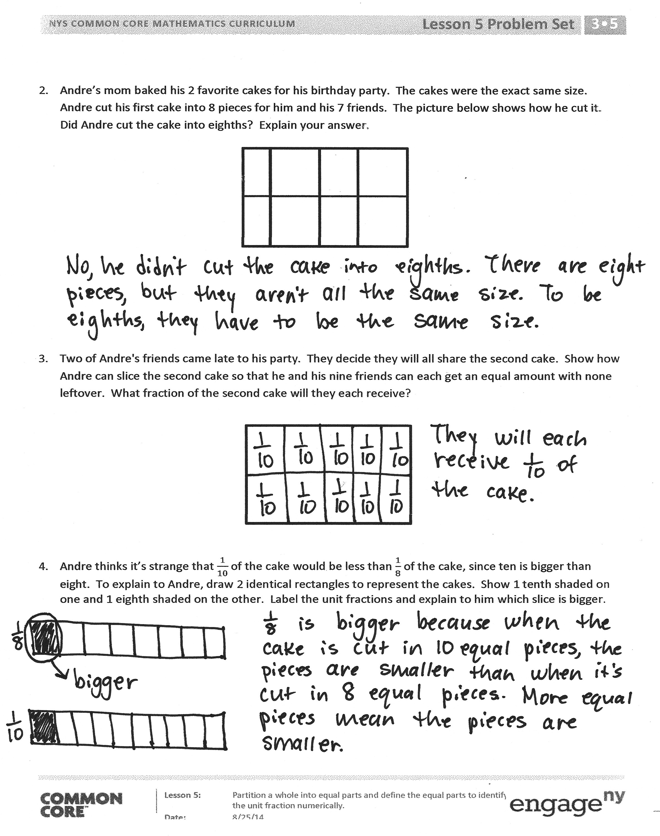 NYS COMMON CORE MATHEMATICS CURRICULUM
Lesson 5 Problem Set
3•5
2. Andre's mom baked his 2 favorite cakes for his birthday party. The cakes were the exact same size.
Andre cut his first cake into 8 pieces for him and his 7 friends. The picture below shows how he cut it.
Did Andre cut the cake into eighths? Explain your answer.
No, he didn't cut the cake into eighths. There are eight
pieces, but they aren't all the same size. To be
eighths, they have to be the same size.
3. Two of Andre's friends came late to his party. They decide they will all share the second cake. Show how
Andre can slice the second cake so that he and his nine friends can each get an equal amount with none
leftover. What fraction of the second cake will they each receive?
1/10 1/10 1/10 1/10 1/10
1/10 1/10 1/10 1/10 1/10
They will each
receive 1/10 of
the cake.
4. Andre thinks it's strange that 1/10 of the cake would be less than 1/8 of the cake, since ten is bigger than
eight. To explain to Andre, draw 2 identical rectangles to represent the cakes. Show 1 tenth shaded on
one and 1 eighth shaded on the other. Label the unit fractions and explain to him which slice is bigger.
1/8
bigger
1/10
1/8 is bigger because when the
cake is cut in 10 equal pieces, the
pieces are smaller than when it's
cut in 8 equal pieces. More equal
pieces mean the pieces are
smaller.
COMMON
CORE™
Lesson 5:
Partition a whole into equal parts and define the equal parts to identify
the unit fraction numerically.
Date:
8/25/14
engage ny